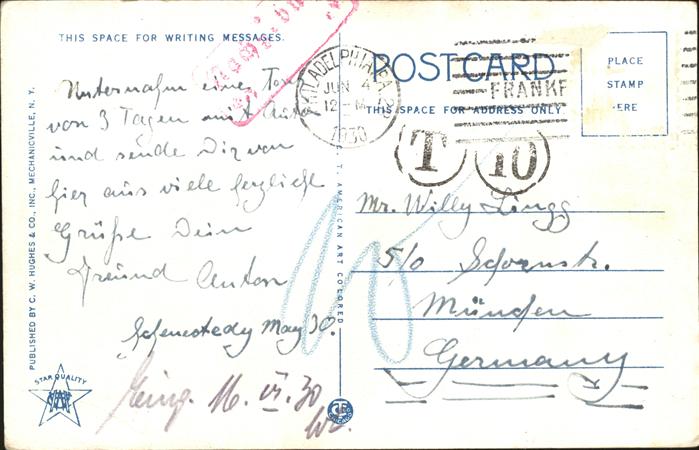 THIS SPACE FOR WRITING MESSAGES.
Unternahm eine Tour
von 3 Tagen mit Auto
und sende Dir von
hier aus viele herzliche
Grüße Dein
Freund Anton
Schenectady May 30.
Eing. 16. VI. 30
PUBLISHED BY C. W. HUGHES & CO., INC., MECHANICVILLE, N. Y.
STAR QUALITY
C. T. AMERICAN ART COLORED
POST CARD
THIS SPACE FOR ADDRESS ONLY
PLACE
STAMP
HERE
PHILADELPHIA, PA.
JUN 4
12-M
1930
FRANKF
T
10
Mr. Willy Lingg
5/0 Schornstr.
München
Germany